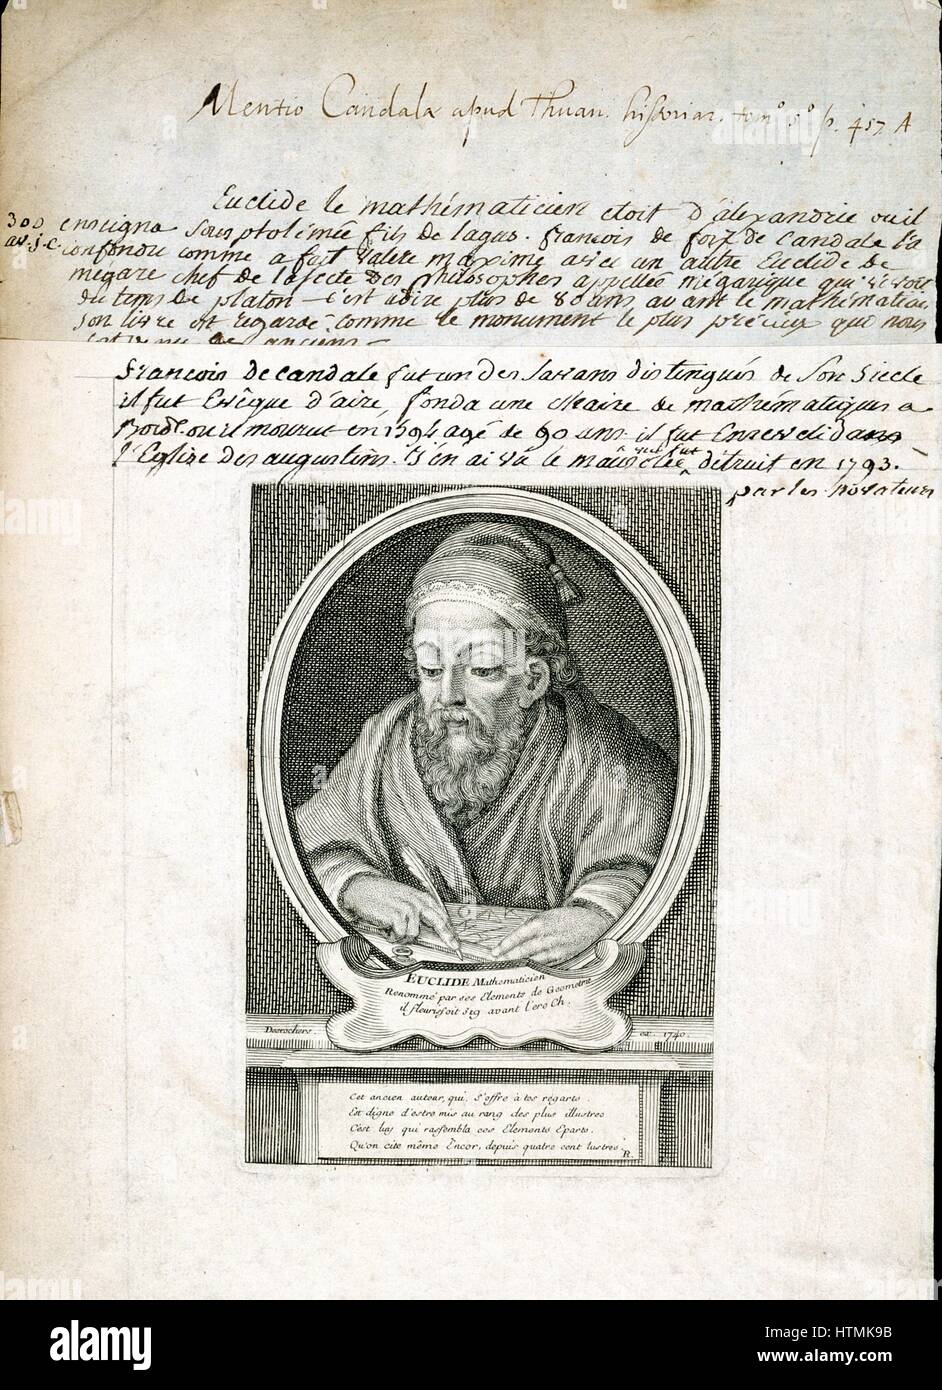 Mentio Candalæ apud Thuan. historiar. tom° 5° p. 457. A
Euclide le mathématicien etoit d'alexandrie ou il
300 enseigna Sous ptolimée fils de lagus. françois de foix de Candale l'a
av. j. c. confondu comme a fait Valere maxime avec un autre Euclide de
megare chef de la secte des philosophes appellée mégarique qui vivoit
du tems de platon - c'est adire plus de 80 ans avant le mathématicien
son livre est regardé comme le monument le plus précieux que nous
anciens -
françois de candale fut un des savans distingués de son siecle
il fut Evêque d'aire, fonda une chaire de mathématiques a
Bord. ou il mourut en 1594 agé de 90 ans. il fut Enseveli dans
l'Eglise des augustins. j'en ai vu le mausolée qui fut détruit en 1793.
par les novateurs
EUCLIDE Mathematicien
Renommé par ses Elemens de Geometrie
il fleurissoit 319 avant l'ere Ch.
Desrochers. ex. 1740.
Cet ancien auteur, qui s'offre à tes régarts.
Est digne d'estre mis au rang des plus illustres
C'est luy qui rassembla ces Elements Eparts.
Qu'on cite même Encor, depuis quatre cent lustres.
R.
alamy
Image ID: HTMK9B
www.alamy.com